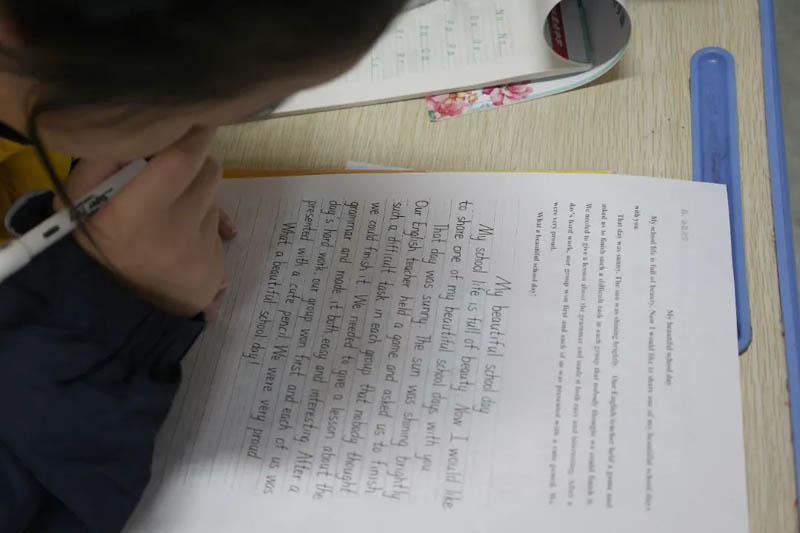 My beautiful school day
My school life is full of beauty. Now I would like to share one of my beautiful school days
with you.
That day was sunny. The sun was shining brightly. Our English teacher held a game and
asked us to finish such a difficult task in each group that nobody thought we could finish it.
We needed to give a lesson about the grammar and made it both easy and interesting. After a
day's hard work, our group won first and each of us was presented with a cute pencil. We
were very proud.
What a beautiful school day!
My beautiful school day
My school life is full of beauty. Now I would like
to share one of my beautiful school days with you.
That day was sunny. The sun was shining brightly.
Our English teacher held a game and asked us to finish
such a difficult task in each group that nobody thought
we could finish it. We needed to give a lesson about the
grammar and made it both easy and interesting. After a
day's hard work, our group won first and each of us was
presented with a cute pencil. We were very proud.
What a beautiful school day!